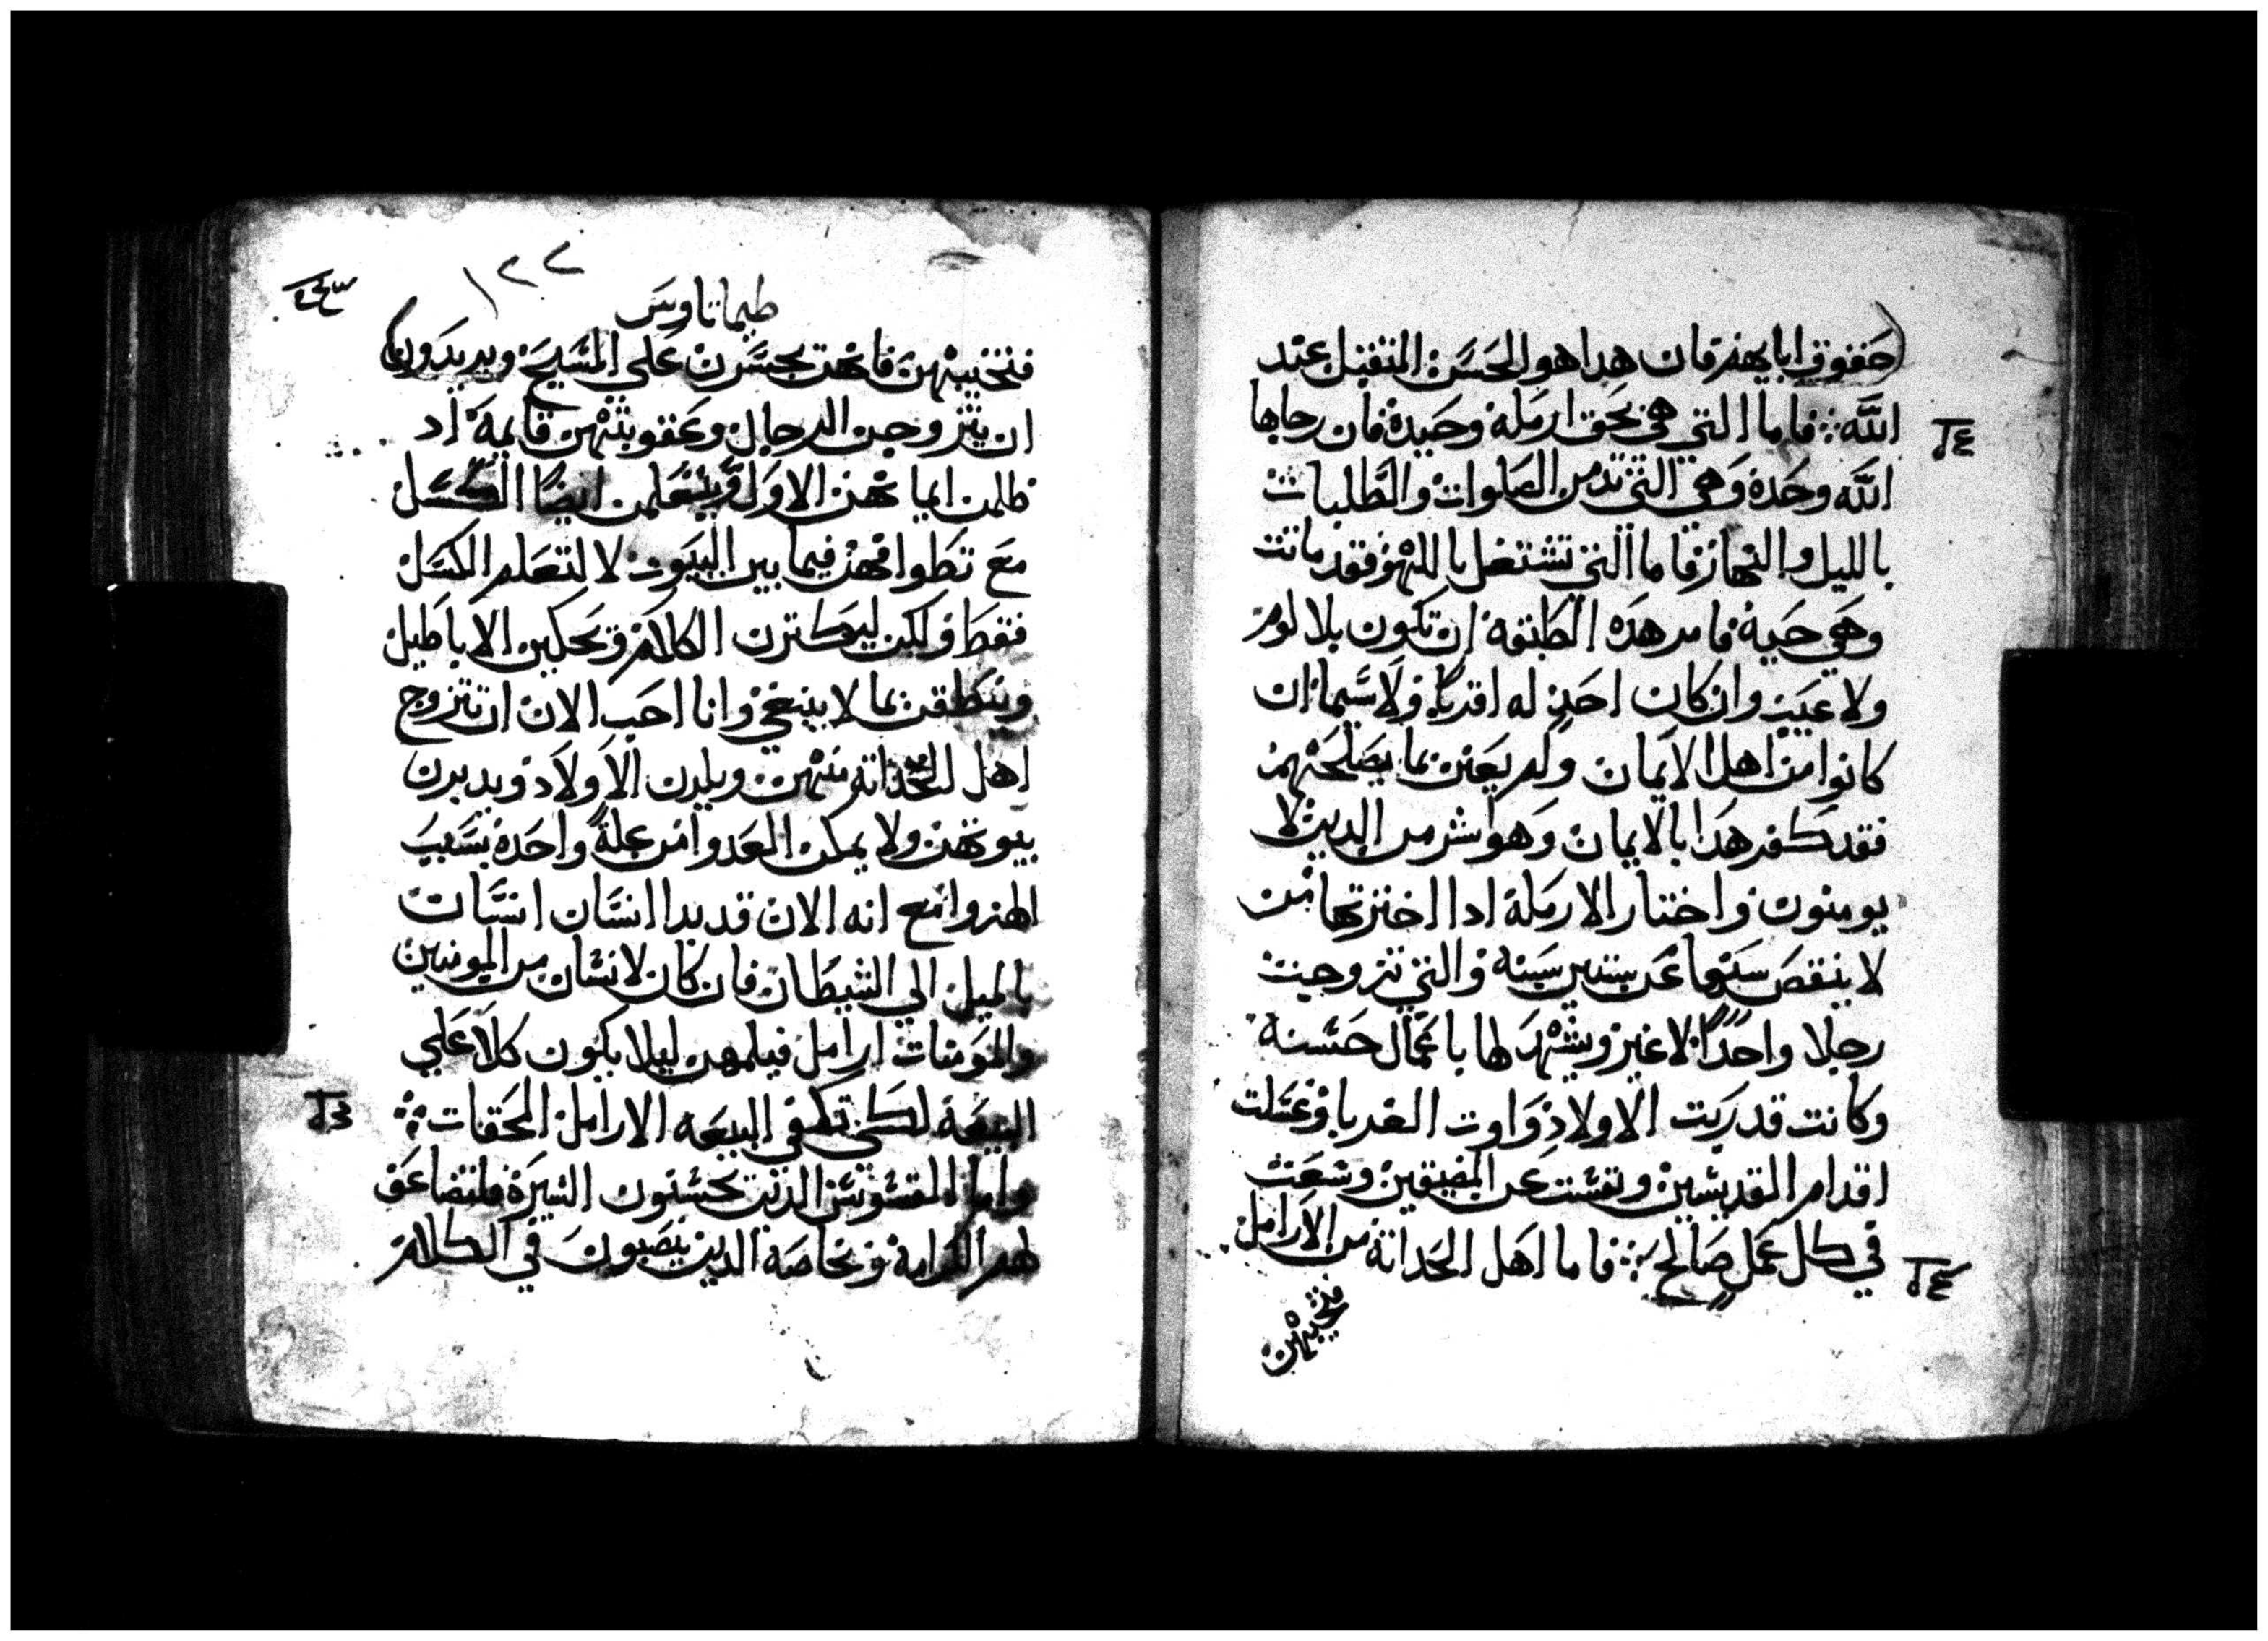 حقوق ابايهم فان هدا هو الحسن المتقبل عند
الله فاما التي هي بحق ارملة وحيدة فان رجاها
الله وحده وهي التي تدمن الصلوات والطلبات
بالليل والنهار فاما التي تشتغل باللهو فقد ماتت
وهي حية فامر هذه الطبقة ان تكون بلا لوم
ولا عيب وان كان احد له اقربا ولا سيما ان
كانوا من اهل الايمان ولم يعن بما يصلحهم
فقد كفر هدا بالايمان وهو اشر من الدين لا
يومنون واختار الارملة ادا اخترتها من
لا ينقص سنها عن ستين سنه والتي تزوجت
رجلا واحدا لا غير ويشهد لها باعمال حسنه
وكانت قد ربت الاولاد واوت الغربا وغسلت
اقدام القديسين ونفست عن المضيقين وسعت
في كل عمل صالح فاما اهل الحداثة من الارامل
فتجنبهن
١٢٢
طيماتاوس
فتجنبهن فانهن يجسرن على المسيح ويريدون
ان يتزوجن الرجال وعقوبتهن قايمة اد
ظلمن ايمانهن الاول ويتعلمن ايضا الكسل
مع تطوافهن فيما بين البيوت لا لتعلم الكسل
فقط ولكن ليكترن الكلام ويحكين الاباطيل
وينطقن بما لا ينبغي وانا احب الان ان تتزوج
اهل الحداثة منهن ويلدن الاولاد ويدبرن
بيوتهن ولا يمكن العدو من علة واحدة بسبب
الهزو مع انه الان قد بدا انسان انسان
بالميل الي الشيطان فان كان لانسان من المومنين
والمومنات ارامل فيلمهن ليلا يكون كلا علي
البيعة لكي تكفي البيعه الارامل المحقات
واما القسوس الدين يحسنون السيرة فلتضاعف
لهم الكرامة وبخاصة الدين ينصبون في الكلام